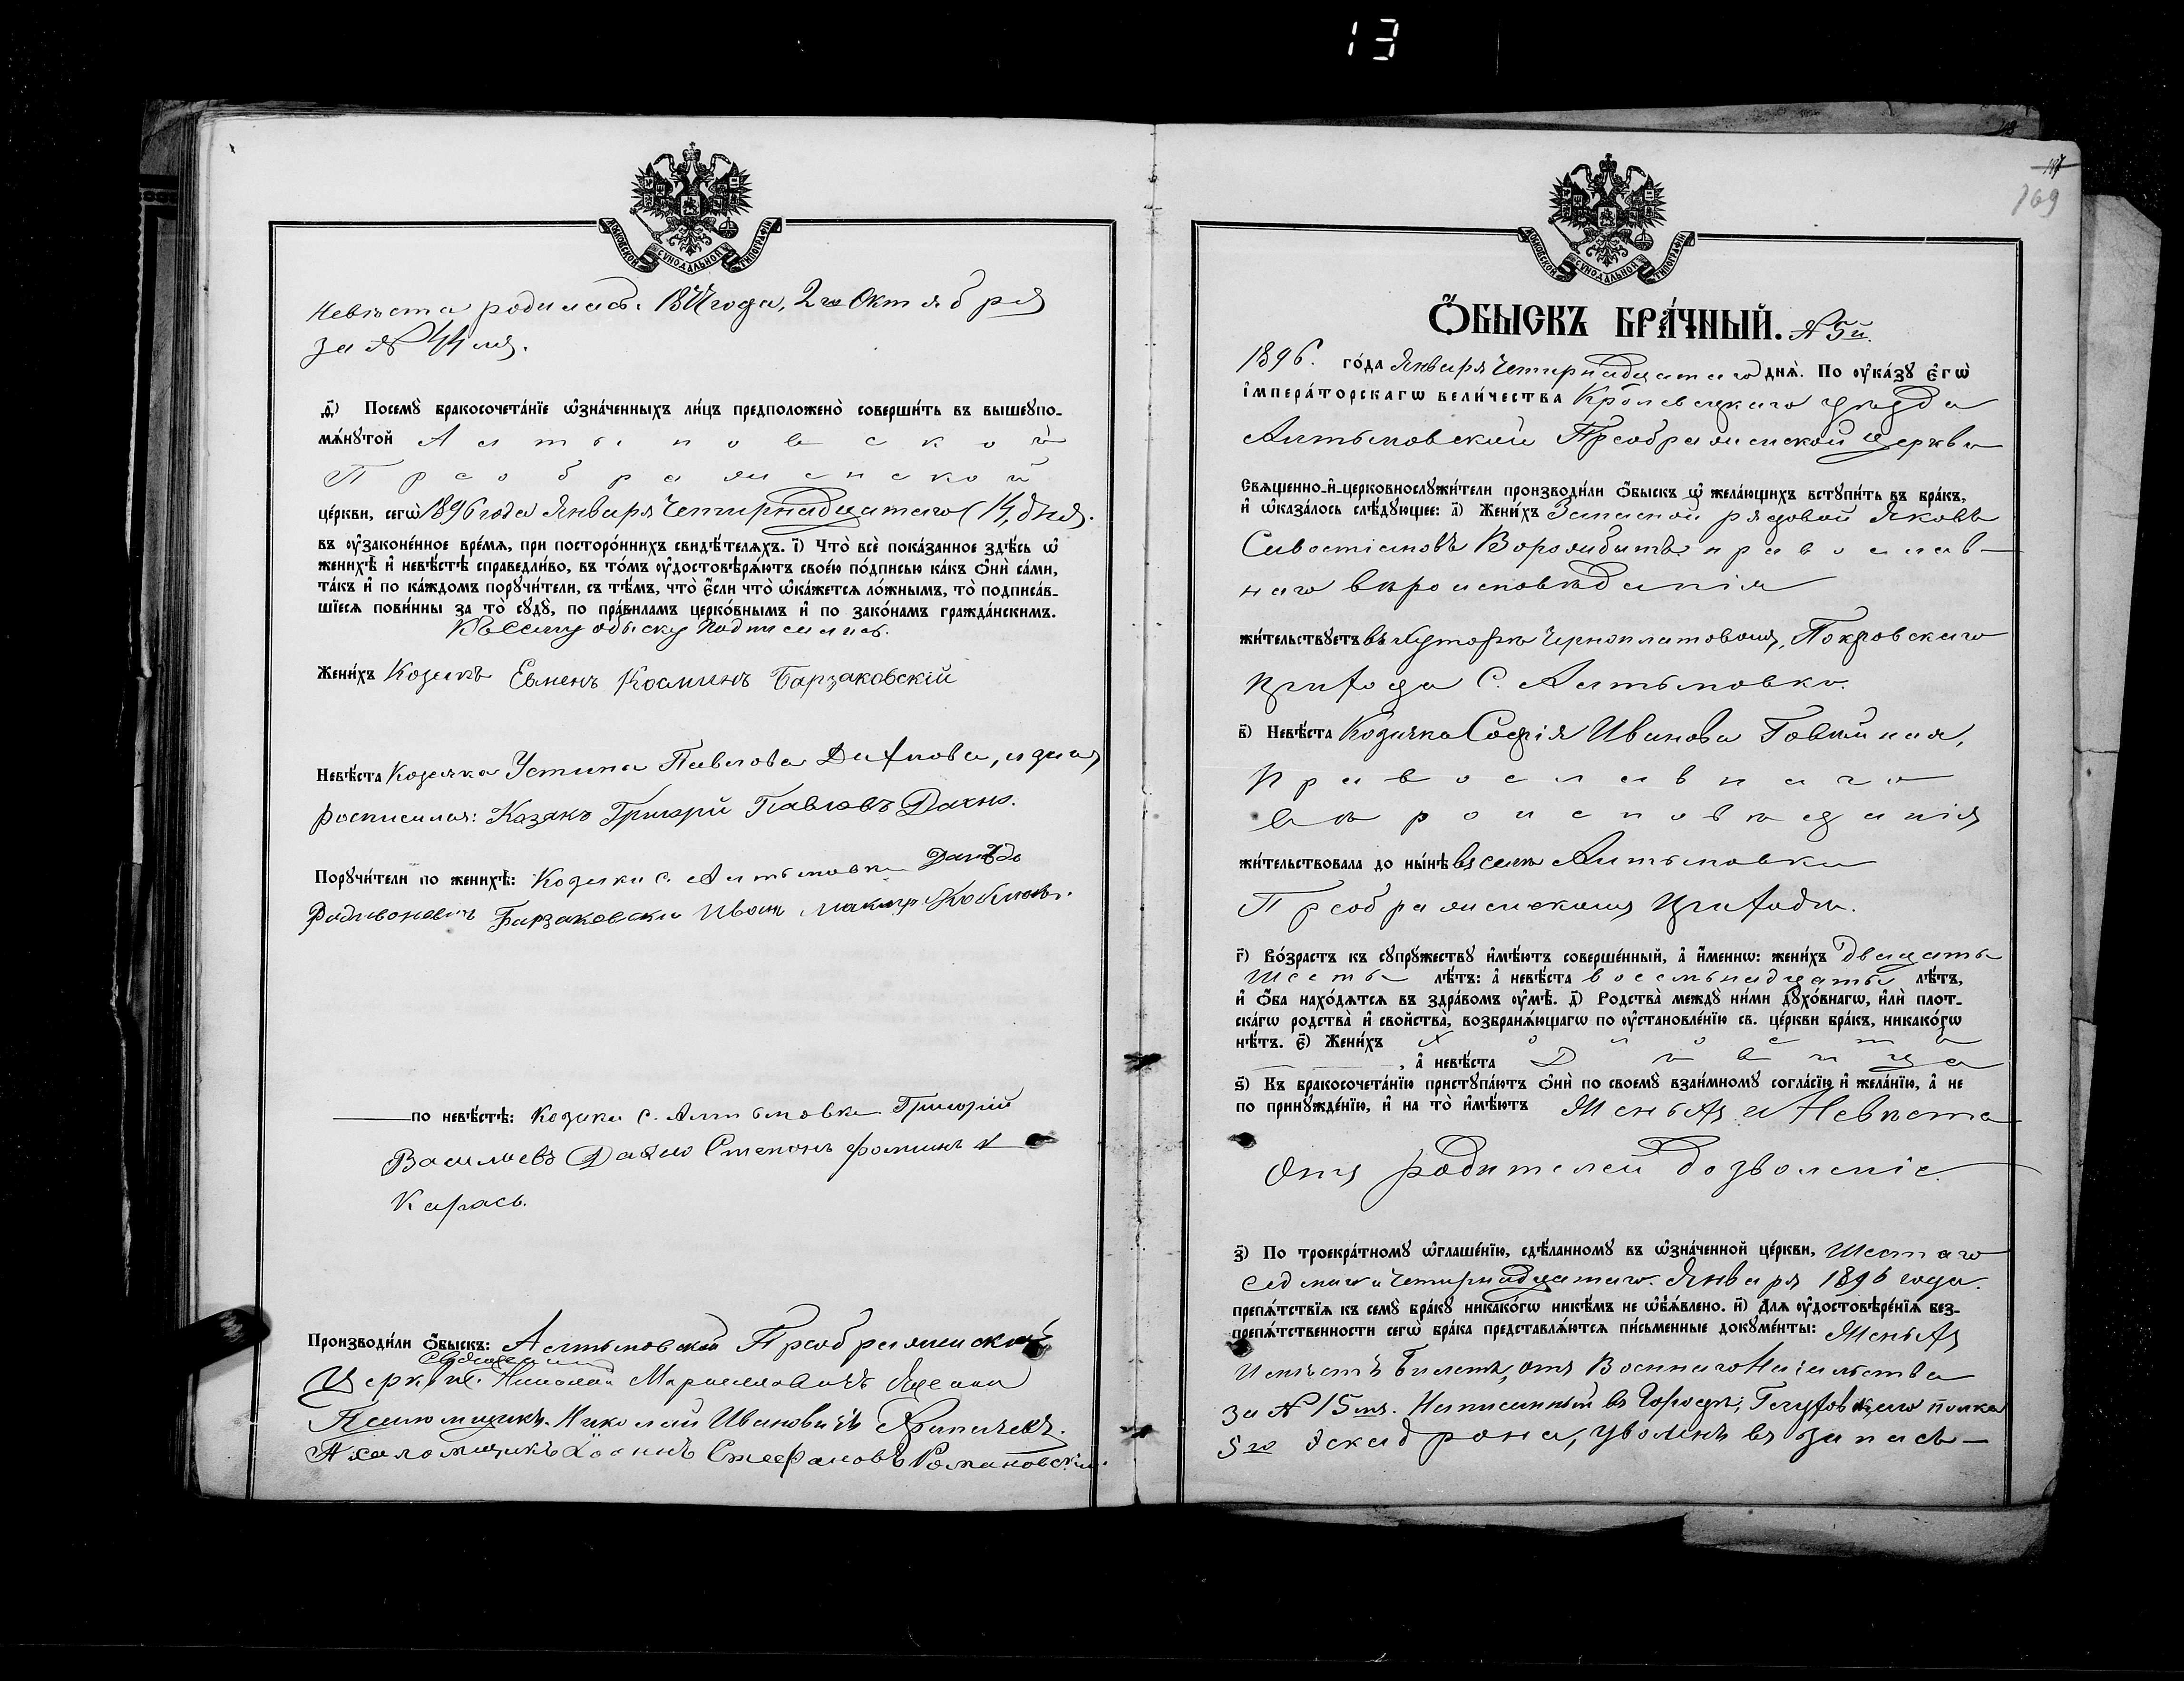 13
МОСКОВСКОЙ СѴНОДАЛЬНОЙ ТИПОГРАФІИ
Невѣста родилась 2го Октября
за № 44мъ.
д҃) Посемꙋ̀ бракосочета́нїе ѡ҆зна́ченныхъ ли́цъ предположено̀ соверши́ть въ вышеꙋпо-
мѧ́нꙋтой Алтыновской
Преображенской
це́ркви, сегѡ̀ 1896 года Января Четырнадцатаго (14) дня.
въ ᲂу҆законе́нное вре́мѧ, при посторо́ннихъ свидѣ́телѧхъ. і҃) Что̀ всѐ пока́занное здѣ́сь ѡ҆
женихѣ̀ и҆ невѣ́стѣ справедли́во, въ то́мъ ᲂу҆достовѣрѧ́ютъ свое́ю по́дписью ка́къ ѻ҆нѝ са́ми,
та́къ и҆ по ка́ждомъ порꙋчи́тели, съ тѣ́мъ, что̀ є҆́сли что̀ ѡ҆ка́жетсѧ ло́жнымъ, то̀ подписа́в-
шїесѧ пови́нны за то̀ сꙋдꙋ̀, по пра́виламъ церко́внымъ и҆ по зако́намъ гражда́нскимъ.
Къ сему обыску подписались.
Жени́хъ Козакъ Евменъ Косминъ Барзаковскій
Невѣ́ста Козачка Устина Павлова Дахнова, а за нея
росписался: Казакъ Григорій Павловъ Дахно.
Порꙋчи́тели по женихѣ̀: Козаки с. Алтыновки Давыдъ
Радивоновичъ Барзаковски Иванъ Макаръ
по невѣ́стѣ: Козаки с. Алтыновки Григорій
Василіевъ Дахно Степанъ Фоминъ
Карась.
Производи́ли ѻ҆́быскъ: Алтыновской Преображенской
Священникъ
Церкви Николай Яценко
Псаломщикъ Николай Ивановичъ
Псаломщикъ Іоаннъ Стефановъ Романовскій.
169
МОСКОВСКОЙ СѴНОДАЛЬНОЙ ТИПОГРАФІИ
Ѻ҆́БЫСКЪ БРА́ЧНЫЙ. № 5й.
1896. го́да Января Четырнадцатаго днѧ̀. По ᲂу҆ка́зꙋ є҆гѡ̀
і҆мпера́торскагѡ вели́чества Кролевецкаго уѣзда
Алтыновской Преображенской церкви
Сващенно-и҆-церковнослꙋжи́тели производи́ли ѻ҆́быскъ ѡ҆ жела́ющихъ встꙋпи́ть въ бра́къ,
и҆ ѡ҆каза́лось слѣ́дꙋющее: а҃) Жени́хъ Запасной рядовой Яковъ
Савостіановъ Ворожбытъ православ-
наго вѣроисповѣданія
жи́тельствꙋетъ въ хуторѣ Черноплатовомъ, Покровскаго
прихода С. Алтыновки.
в҃) Невѣ́ста Козачка Софія Иванова
Православнаго
вѣроисповѣданія
жи́тельствовала до ны́нѣ въ селѣ Алтыновки
Преображенскомъ приходѣ.
г҃) Во́зрастъ къ сꙋпрꙋ́жествꙋ и҆мѣ́ютъ соверше́нный, а҆ и҆́меннѡ: жени́хъ двадцать
шесть лѣ́тъ: а҆ невѣ́ста восемьнадцать лѣ́тъ,
и҆ ѻ҆́ба нахо́дѧтсѧ въ здра́вомъ ᲂу҆мѣ̀. д҃) Родства̀ междꙋ̀ ни́ми дꙋхо́внагѡ, и҆лѝ плот-
ска́гѡ родства̀ и҆ сво́йства, возбранѧ́ющагѡ по ᲂу҆становле́нїю св. це́ркви бра́къ, никако́гѡ
нѣ́тъ. є҃) Жени́хъ холостъ
, а҆ невѣ́ста Дѣвица
ѕ҃) Къ бракосочета́нїю пристꙋпа́ютъ ѻ҆нѝ по своемꙋ̀ взаи́мномꙋ согла́сїю и҆ жела́нїю, а҆ не
по принꙋжде́нїю, и҆ на то̀ и҆мѣ́ютъ Женихъ и Невѣста
отъ родителей дозволеніе.
з҃) По троекра́тномꙋ ѡ҆глаше́нїю, сдѣ́ланномꙋ въ ѡ҆зна́ченной це́ркви, шестаго
седмаго и четырнадцатаго Января 1896 года.
препѧ́тствїѧ къ семꙋ̀ бра́кꙋ никако́гѡ никѣ́мъ не ѡ҆б̾ѧ́влено. и҃) Длѧ ᲂу҆достовѣре́нїѧ без-
препѧ́тственности сегѡ̀ бра́ка представлѧ́ютсѧ пи́сьменные докꙋме́нты: Женихъ
Имѣетъ Билетъ, отъ Военнаго Начальства
за № 15мъ. Написанный въ Городѣ, полка
5го Эскадрона, уволенъ въ запасъ